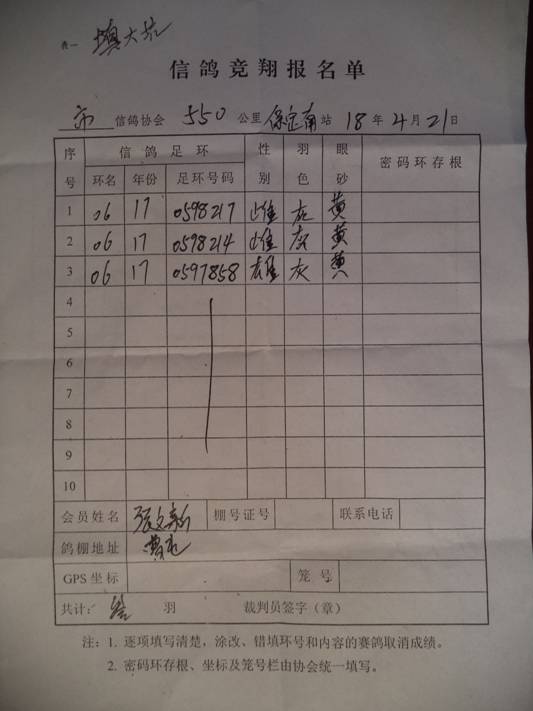 表一 填大坑
信鸽竞翔报名单
市 信鸽协会 550 公里 保定南 站 18 年 4 月 21 日
序号 信鸽足环 性别 羽色 眼砂 密码环存根
环名 年份 足环号码
1 06 17 0598217 雌 灰 黄
2 06 17 0578214 雌 灰 黄
3 06 17 0597858 雄 灰 黄
4
5
6
7
8
9
10
会员姓名 张文新 棚号证号 联系电话
鸽棚地址
GPS坐标 笼号
共计: 羽 裁判员签字(章)
注:1. 逐项填写清楚,涂改、错填环号和内容的赛鸽取消成绩。
2. 密码环存根、坐标及笼号栏由协会统一填写。